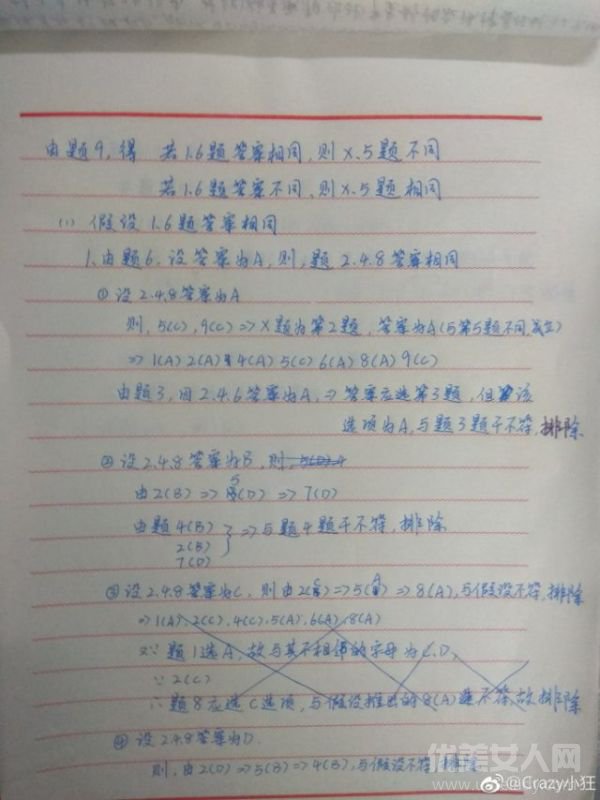 由题9,得 若1.6题答案相同,则X.5题不同
若1.6题答案不同,则X.5题相同
(1) 假设1.6题答案相同
1.由题6,设答案为A,则,题2.4.8答案相同
①设2.4.8答案为A
则,5(C),9(C)=>X题为第2题,答案为A(与第5题不同,成立)
=>1(A)2(A)4(A)5(C)6(A)8(A)9(C)
由题3,因2.4.6答案为A,=>答案应选第3题,但该
选项为A,与题3题干不符,排除
②设2.4.8答案为B,则
由2(B)=>5(D)=>7(D)
由题4(B)
2(B)
7(D)
=>与题4题干不符,排除
③设2.4.8答案为C,则由2(C)=>5(A)=>8(A),与假设不符,排除
=>1(A).2(C).4(C).5(A).6(A).8(A)
又∵题1选A,故与其不相邻的字母为C.D,
∵2(C)
∴题8应选C选项,与假设推出的8(A)不符,故排除
④设2.4.8答案为D.
则,由2(D)=>5(B)=>4(B),与假设不符,排除
优美女人网
@Crazy小狂